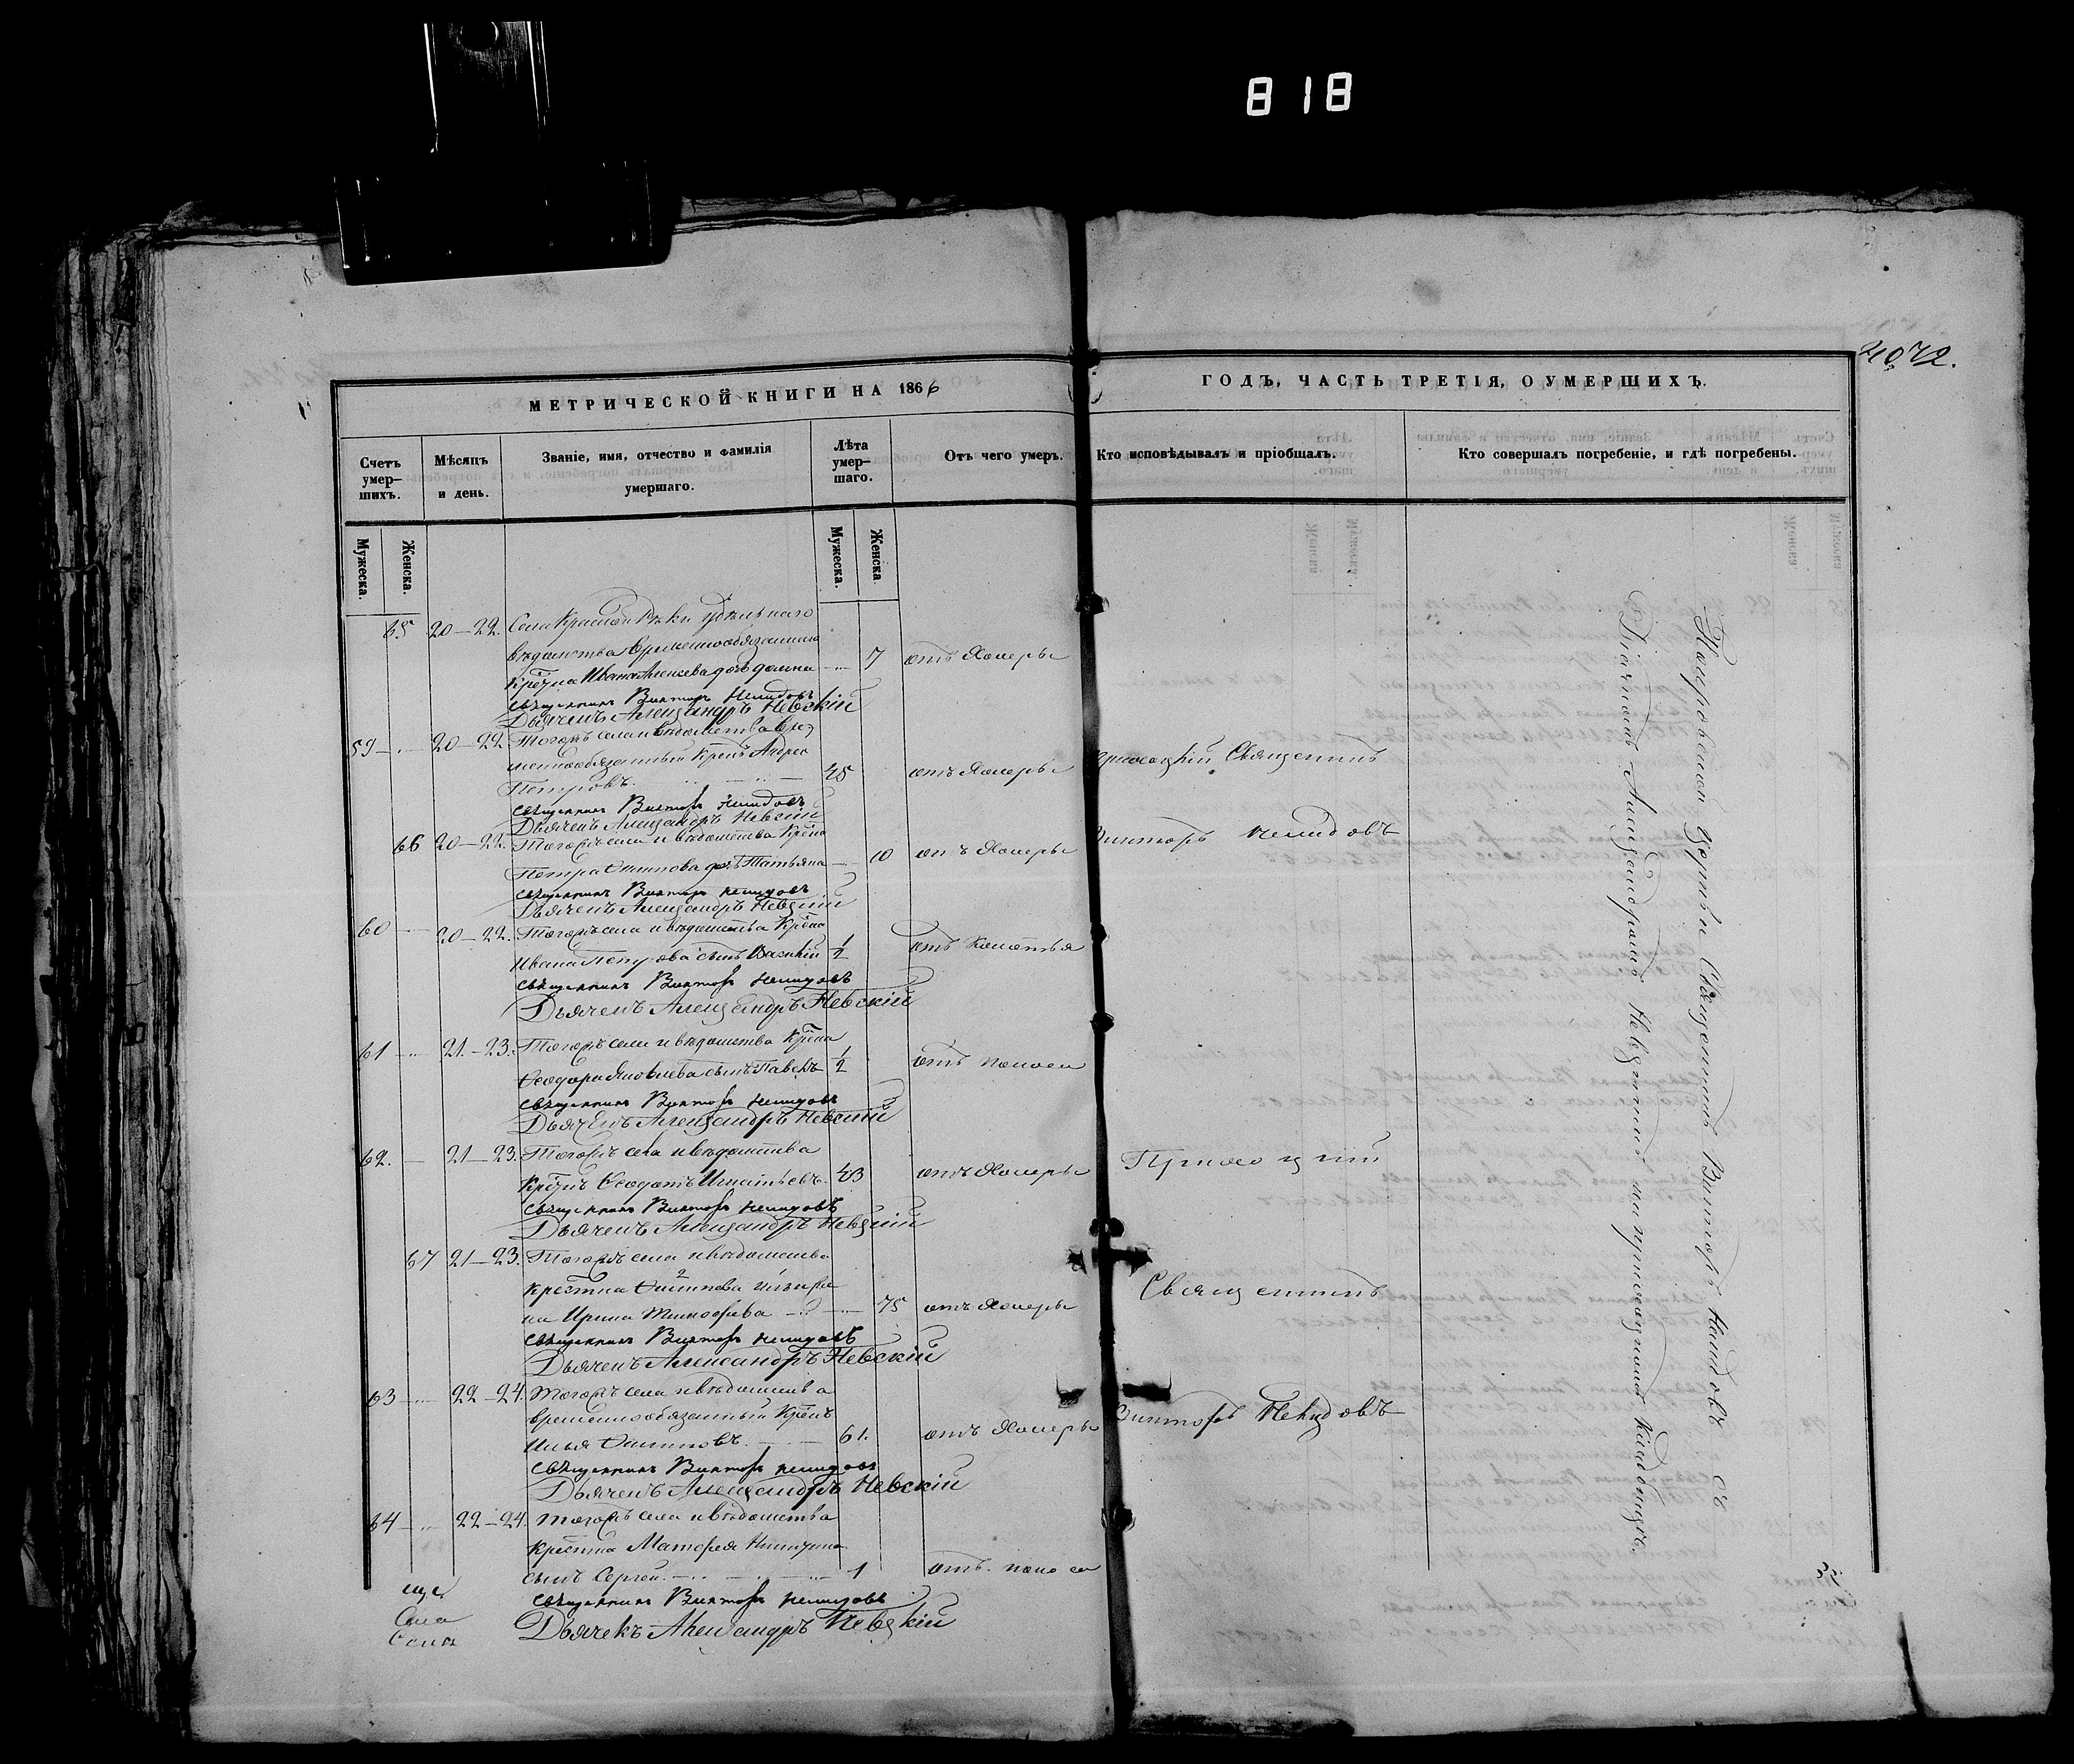 818
4072.
МЕТРИЧЕСКОЙ КНИГИ НА 1866
ГОДЪ, ЧАСТЬ ТРЕТІЯ, О УМЕРШИХЪ.
Счетъ умер-шихъ.
Мѣсяцъ и день.
Званіе, имя, отчество и фамилія умершаго.
Лѣта умер-шаго.
Отъ чего умеръ.
Кто исповѣдывалъ и пріобщалъ.
Кто совершалъ погребеніе, и гдѣ погребены.
Мужеска.
Женска.
Мужеска.
Женска
65 20—22. Села Красной Рѣки удѣльнаго
вѣдомства временнообязаннаго
Ивана Алексѣева дочь Домна 7 отъ Холеры
Священникъ Викторъ Немидовъ
Дьячекъ Александръ Невскій
59 20—22 Тогожъ села и вѣдомства вре
меннообязанный Андрей
Петровъ. 45 отъ Холеры
Приходскій Священникъ
Священникъ Викторъ Немидовъ
Дьячекъ Александръ Невскій
66 20—22. Тогожъ села и вѣдомства
Петра Осипова дочь Татьяна 10 отъ Холеры
Викторъ Немидовъ
Священникъ Викторъ Немидовъ
Дьячекъ Александръ Невскій
60 20—22. Тогожъ села и вѣдомства
Ивана сынъ Василій 1/2
Священникъ Викторъ Немидовъ
Дьячекъ Александръ Невскій
61 21.—23. Тогожъ села и вѣдомства
Ѳеодора Яковлева сынъ Павелъ 1/2 отъ поноса
Священникъ Викторъ Немидовъ
Дьячекъ Александръ Невскій
62. 21—23. Тогожъ села и вѣдомства
Игнатьевъ. 43 отъ Холеры
Приходскій
Священникъ Викторъ Немидовъ
Дьячекъ Александръ Невскій
67 21—23. Тогожъ села и вѣдомства
Осипова
Ирина Тимофѣева 75 отъ Холеры
Священникъ
Священникъ Викторъ Немидовъ
Дьячекъ Александръ Невскій
63 22—24. Тогожъ села и вѣдомства
временнообязанный
Илья Осиповъ. 61. отъ Холеры
Викторъ Немидовъ
Священникъ Викторъ Немидовъ
Дьячекъ Александръ Невскій
64 22—24. Тогожъ села и вѣдомства
Матфея Никитина
сынъ Сергей. 1 отъ поноса
Священникъ Викторъ Немидовъ
Дьячекъ Александръ Невскій
еще
Села
Села
Покровской церкви Священникъ Викторъ Немидовъ съ
Дьячкомъ Александромъ Невскимъ на приходскомъ кладбищѣ.